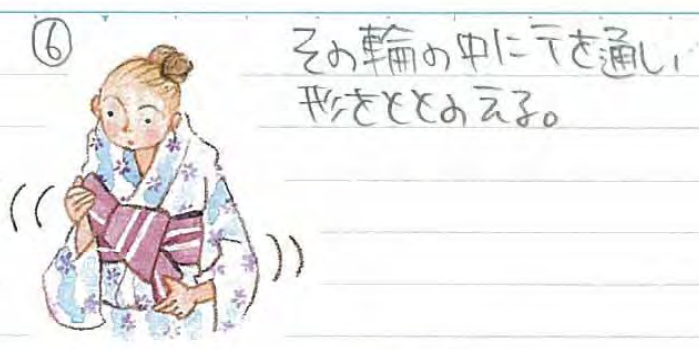 ⑥
その輪の中にTを通し、
形をととのえる。